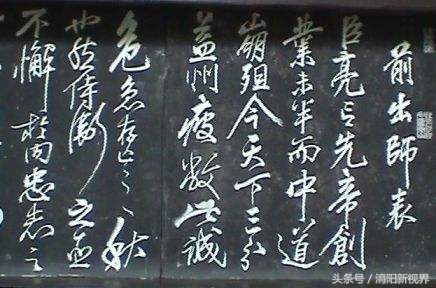 前出師表
臣亮言先帝創
業未半而中道
崩殂今天下三分
益州疲敝此誠
危急存亡之秋
也然侍衛之臣
不懈於内忠志之
头条号/淯阳新视界